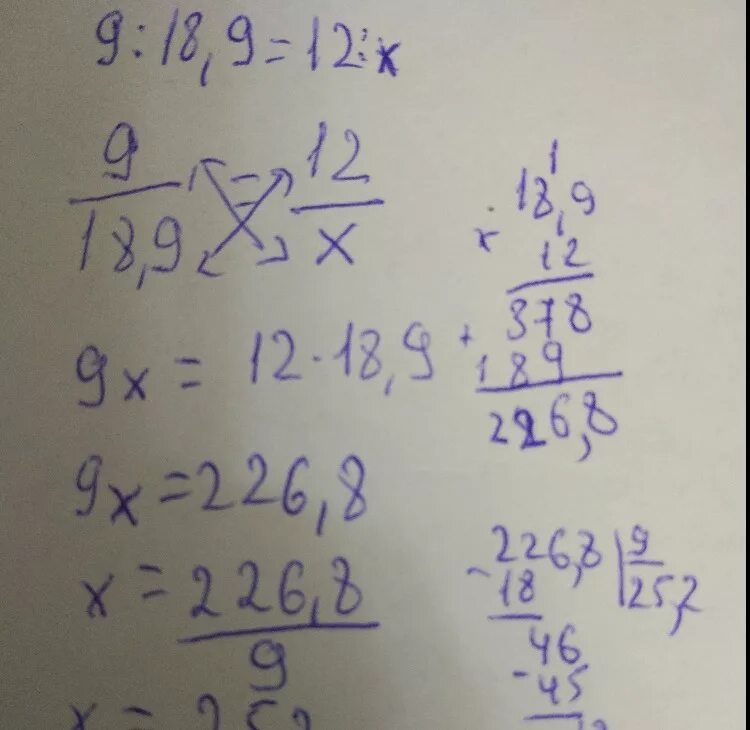 9:18,9=12:x
9/18,9 = 12/x
9x = 12·18,9
9x = 226,8
x = 226,8/9
x = 25,2
1
18,9
1
× 12
378
+ 189
226,8
226,8 | 9
- 18 | 25,2
46
- 45